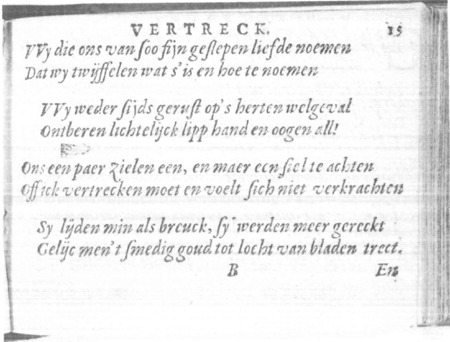 VERTRECK. 15
VVy die ons van soo fijn geslepen liefde noemen
Dat wy twijffelen wat s'is en hoe te noemen
VVy weder sijds gerust op's herten welgeval
Ontberen lichtelijck lipp hand en oogen all!
Ons een paer zielen een, en maer een siel te achten
Off ick vertrecken moet en voelt sich niet verkrachten
Sy lijden min als breuck, sy werden meer gereckt
Gelijc men't smedig goud tot locht van bladen trect.
B En